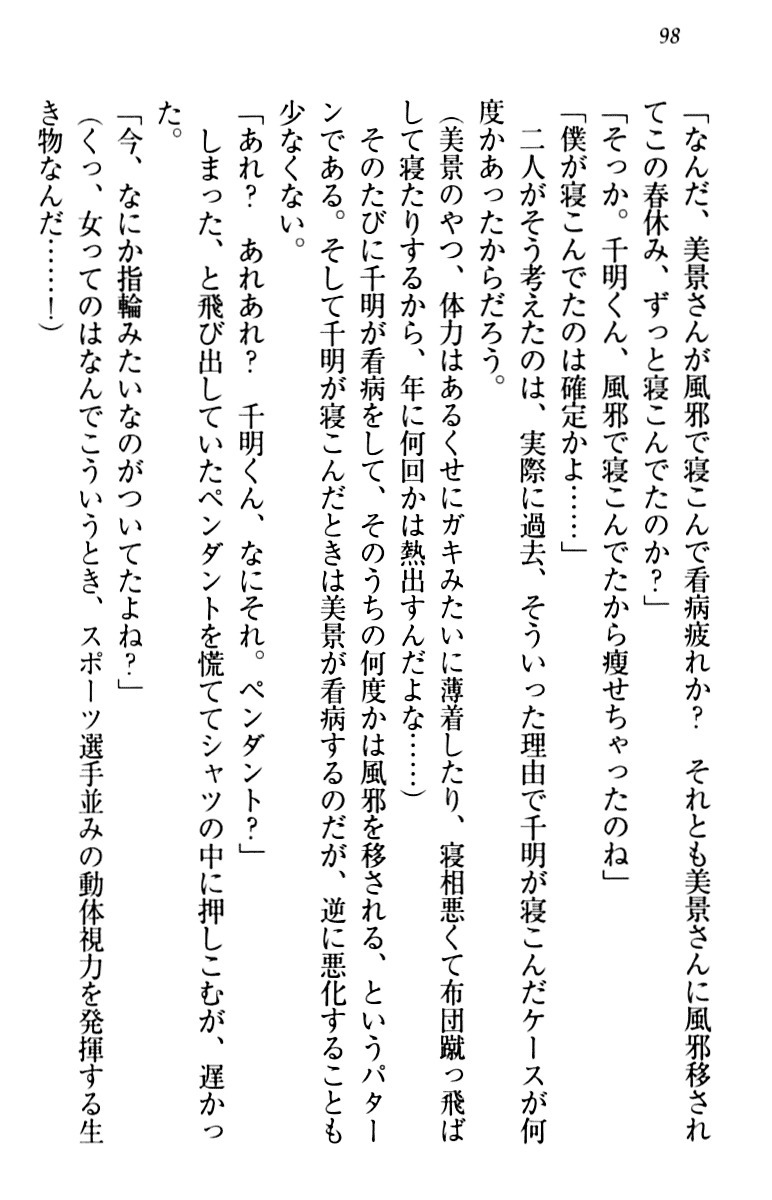 98
「なんだ、美景さんが風邪で寝こんで看病疲れか？　それとも美景さんに風邪移され
てこの春休み、ずっと寝こんでたのか？」
「そっか。千明くん、風邪で寝こんでたから痩せちゃったのね」
「僕が寝こんでたのは確定かよ……」
　二人がそう考えたのは、実際に過去、そういった理由で千明が寝こんだケースが何
度かあったからだろう。
（美景のやつ、体力はあるくせにガキみたいに薄着したり、寝相悪くて布団蹴っ飛ば
して寝たりするから、年に何回かは熱出すんだよな……）
　そのたびに千明が看病をして、そのうちの何度かは風邪を移される、というパター
ンである。そして千明が寝こんだときは美景が看病するのだが、逆に悪化することも
少なくない。
「あれ？　あれあれ？　千明くん、なにそれ。ペンダント？」
　しまった、と飛び出していたペンダントを慌ててシャツの中に押しこむが、遅かっ
た。
「今、なにか指輪みたいなのがついてたよね？」
（くっ、女ってのはなんでこういうとき、スポーツ選手並みの動体視力を発揮する生
き物なんだ……！）